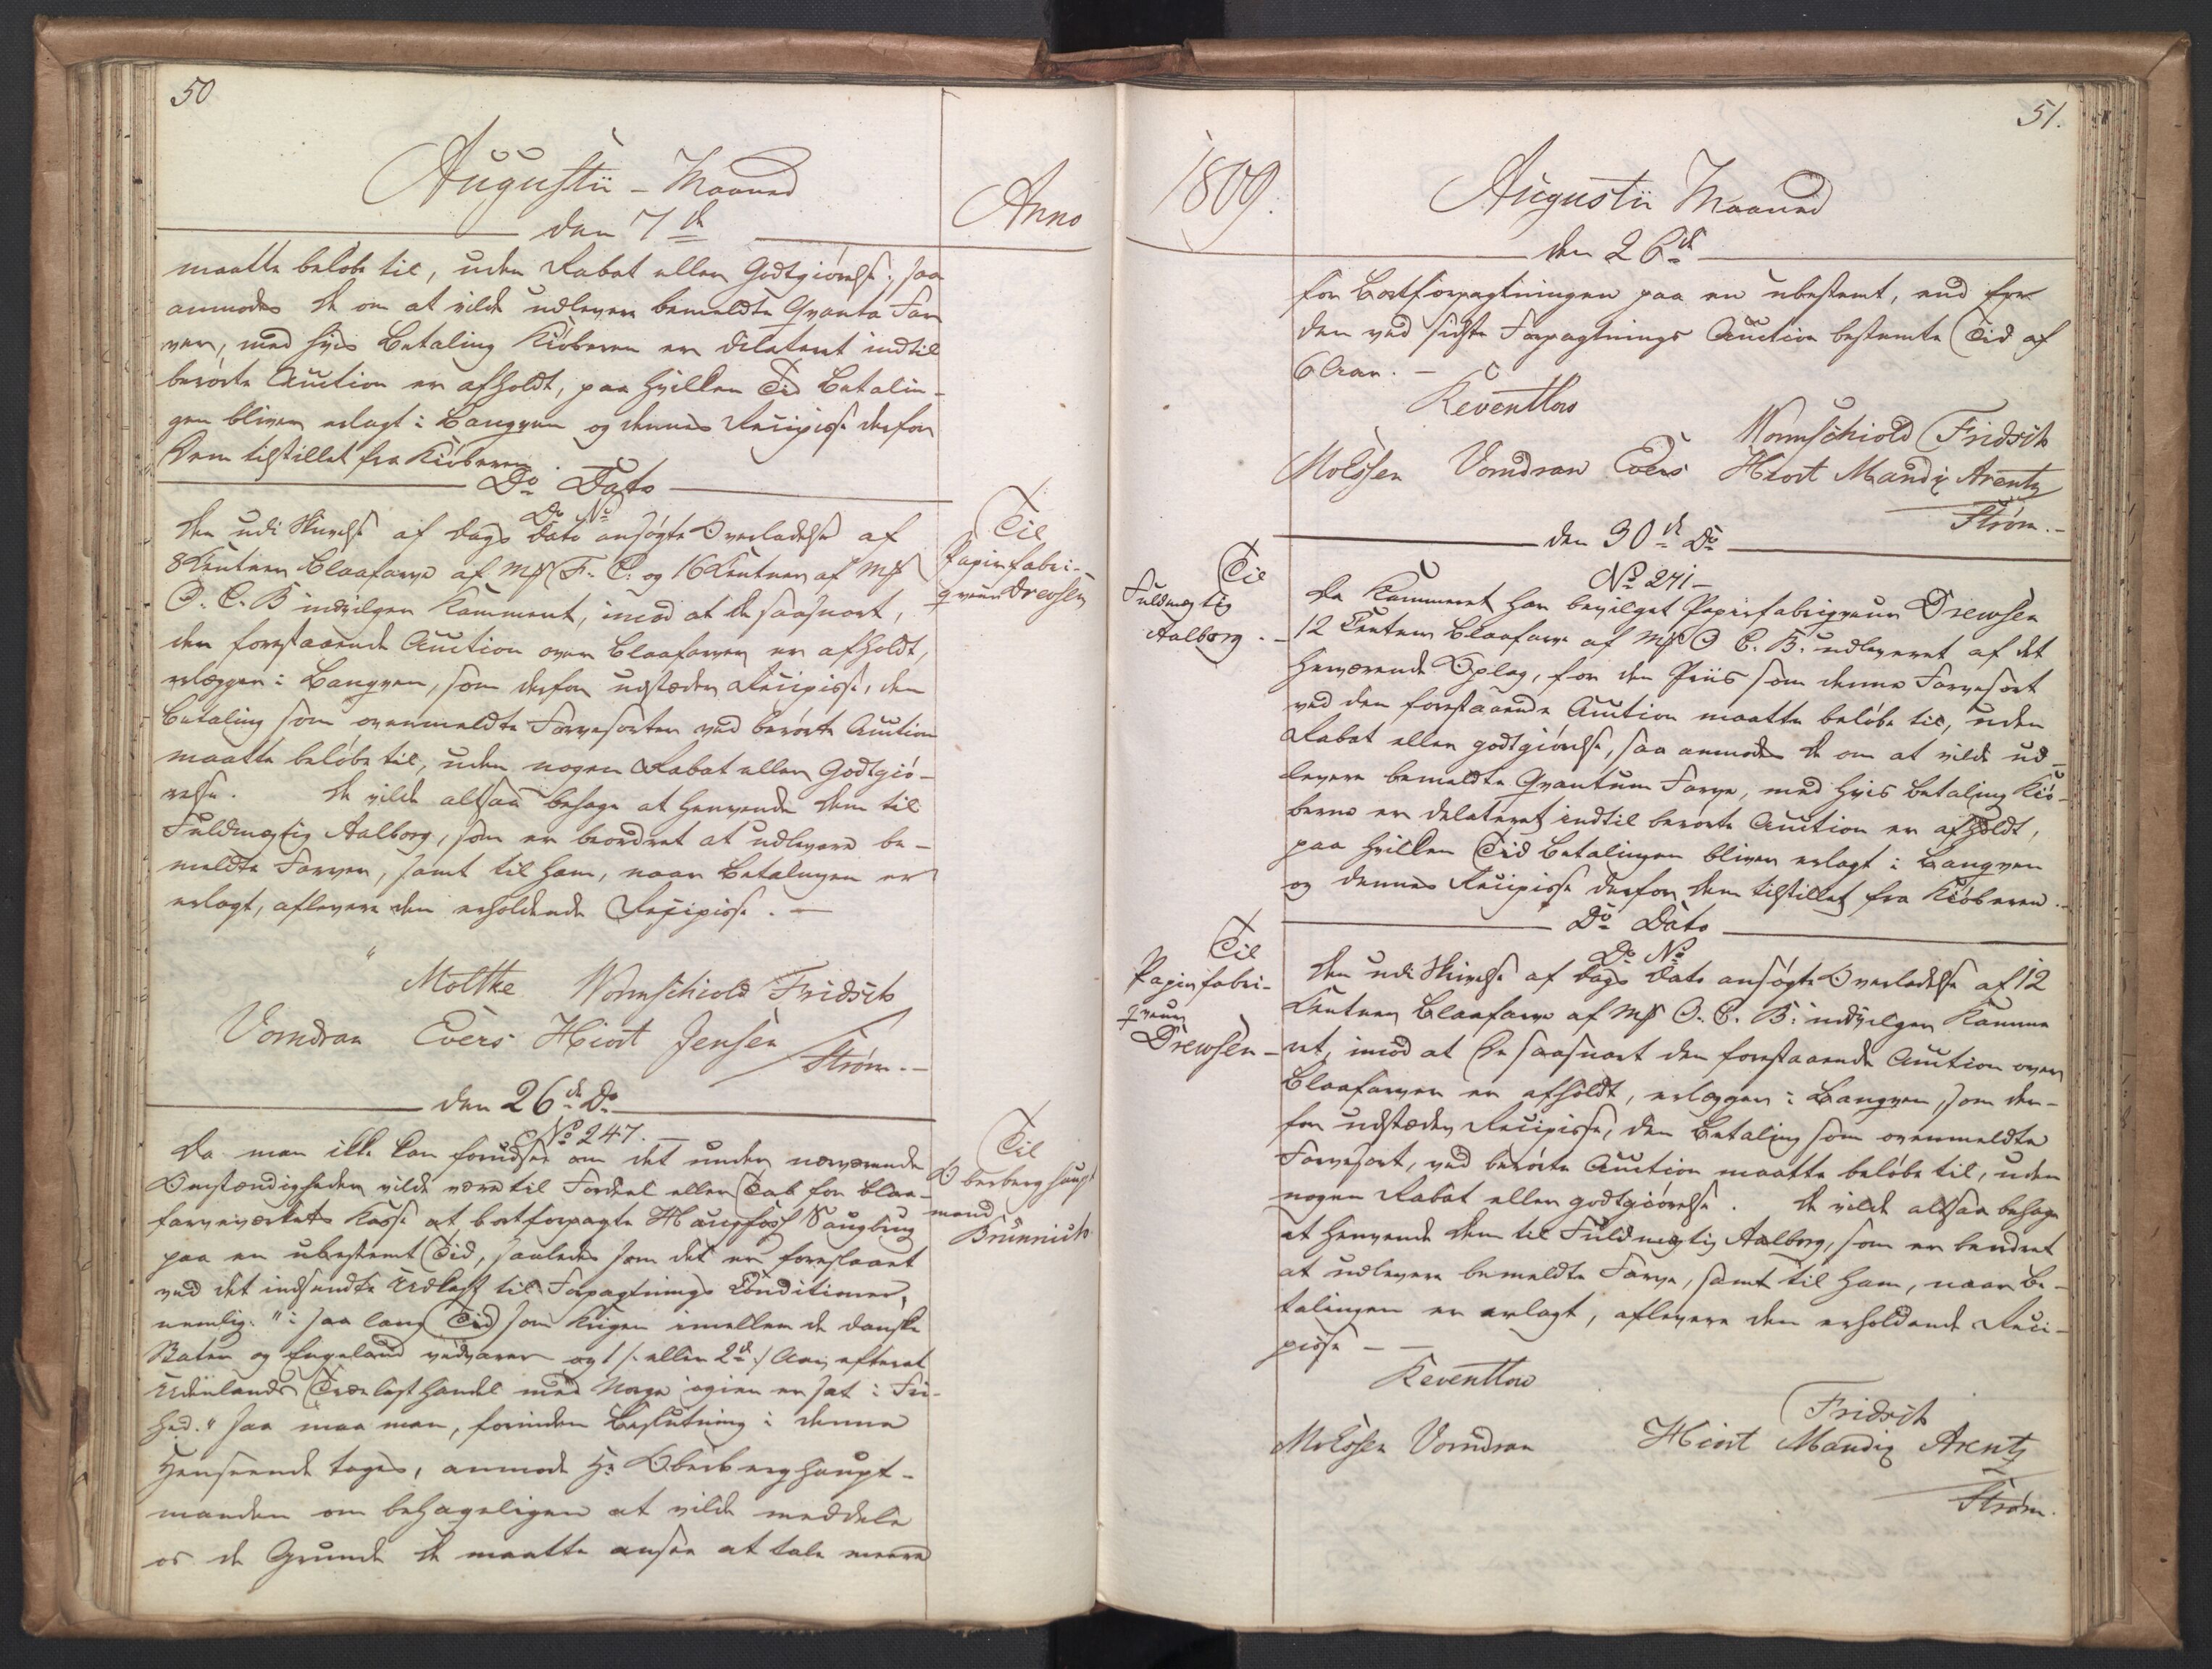 50
Augustii - Maaned
den 7de
Anno
maatte beløbe til, uden Rabat eller Godtgiørelse; saa
anmodes De om at vilde udlevere bemeldte Qvanta Far
ver, med hvis Betaling Kiøberen er dilateret indtil
berørte Auction er afholdt, paa hvilken Tid Betalin-
gen bliver erlagt i Banqven og dennes Recipisse derfor
Dem tilstillet fra Kiøberen.
Do Dato
Do No
Til
Papirfabri-
qveur Drewsen
Den udi Skrivelse af Dags Dato ansøgte Overladelse af
8 Centner Blaafarve af Mß F. C. og 16 Centner af Mß
O. C. B indvilger Kammeret, imod at De saasnart,
den forestaaende Auction over Blaafarver er afholdt,
erlægger i Banqven, som derfor udsteder Recipisse, den
Betaling som ovenmeldte Farvesorter ved berørte Auction
maatte beløbe til, uden nogen Rabat eller Godtgiø-
relse. De vilde altsaa behage at henvende Dem til
Fuldmægtig Aalborg, som er beordret at udlevere be-
meldte Farver, samt til ham, naar Betalingen er
erlagt, aflevere den erholdende Recipisse. —
Moltke Wormschiold Fridsch
Vorndran Evers Hiort Jensen
Strøm. -
den 26de Do
No 247.
Til
Oberberghaupt
mand
Brünnich
Da man ikke kan forudsee om det under nærværende
Omstændigheder vilde være til Fordeel eller Tab for Blaa-
farveværkets Kasse at bortforpagte Haugfoss Saugbrug
paa en ubestemt Tid, saaledes som det er foreslaaet
ved det indsendte Udkast til Forpagtnings Conditioner,
nemlig: "i saa lang Tid som Krigen imellem de danske
Stater og Engeland vedvarer og 1 /: eller 2de :/ Aar, efterat
Udenlands Trælast Handel med Norge igien er sat i Fri-
hed." saa maa man, forinden Beslutning i denne
Henseende tages, anmode Hr Oberberghaupt-
manden om behageligen at vilde meddele
os de Grunde De maatte ansee at tale meere
51.
1809.
Augustii Maaned
den 26de
for Bortforpagtningen paa en ubestemt, end for
den ved sidste Forpagtnings Auction bestemte Tid af
6 Aar. -
Reventlow
Wormschiold Fridsch
Molssen Vorndran Evers Hiort Mandix Arentz
Strøm. -
den 30de Do
No 241 -
Til
Fuldmægtig
Aalborg. -
Da Kammeret har bevilget Papirfabriqveur Drewsen
12 Centner Blaafarve af Mß O C. B. udleveret af det
herværende Oplag, for den Priis som denne Farvesort
ved den forestaaende Auction maatte beløbe til, uden
Rabat eller godtgiørelse, saa anmodes De om at vilde ud-
levere bemeldte Qvantum Farve, med hvis Betaling Kiø-
beren er delateret indtil berørte Auction er afholdt,
paa hvilken Tid Betalingen bliver erlagt i Banqven
og dennes Recipisse derfor Dem tilstillet fra Kiøberen. -
Do Dato
Do No
Til
Papirfabri-
qveur
Drewsen -
Den udi Skrivelse af Dags Dato ansøgte Overladelse af 12
Centner Blaafarve af Mß O. C. B. indvilger Kamme
ret, imod at De saasnart den forestaaende Auction over
Blaafarver er afholdt, erlægger i Banqven, som der-
for udsteder Recipisse, den Betaling som ovenmeldte
Farvesort, ved berørte Auction maatte beløbe til, uden
nogen Rabat eller godtgiørelse. De vilde altsaa behage
at henvende Dem til Fuldmægtig Aalborg, som er beordret
at udlevere bemeldte Farve, samt til ham, naar Be-
talingen er erlagt, aflevere den erholdende Reci-
pisse - -
Reventlow
Fridsch
Molssen Vorndran Hiort Mandix Arentz
Strøm.